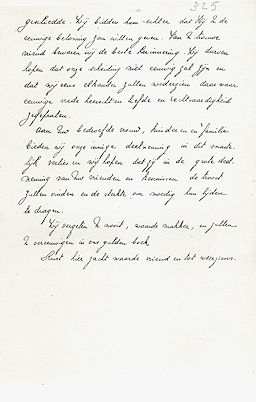 325
geschiedde. Wij bidden hem echter dat Hij U de
eeuwige belooning zou willen geven. Van U trouwe
vriend bewaren wij de beste herinnering. Wij durven
hopen dat onze scheiding niet eeuwig zal zijn en
dat wij eens elkander zullen wederzien daar waar
eeuwige vrede heerscht en liefde en rechtvaardigheid
zegepralen.
Aan Uw bedroefde vrouw, kinderen en familie
bieden wij onze innige deelneming in dit smarte-
lijk verlies en wij hopen dat zij in de groote deel-
neming van Uw vrienden en kennissen de troost
zullen vinden en de sterkte om moedig hun lijden
te dragen.
Wij vergeten U nooit, waarde makker, en zullen
U vereeuwigen in ons gulden boek.
Rust hier zacht waarde vriend en tot weerziens.